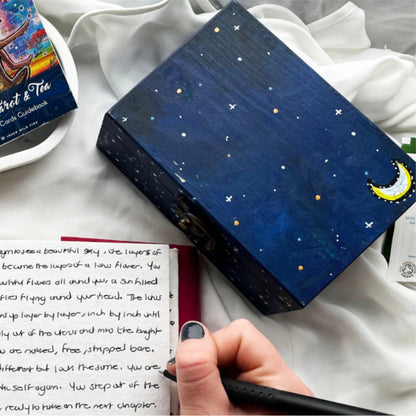 arot & Tea
Cards Guidebook
a beautiful sky, the layers of
become the layers of a lotus flower. You
all around you a sun filled
flies flying around your head. The lotus
up layer by layer, inch by inch until
out of the lotus and into the bright
are naked, free, stripped bare.
different but look the same. You are
self again. You step out of the
ready to take on the next chapter.